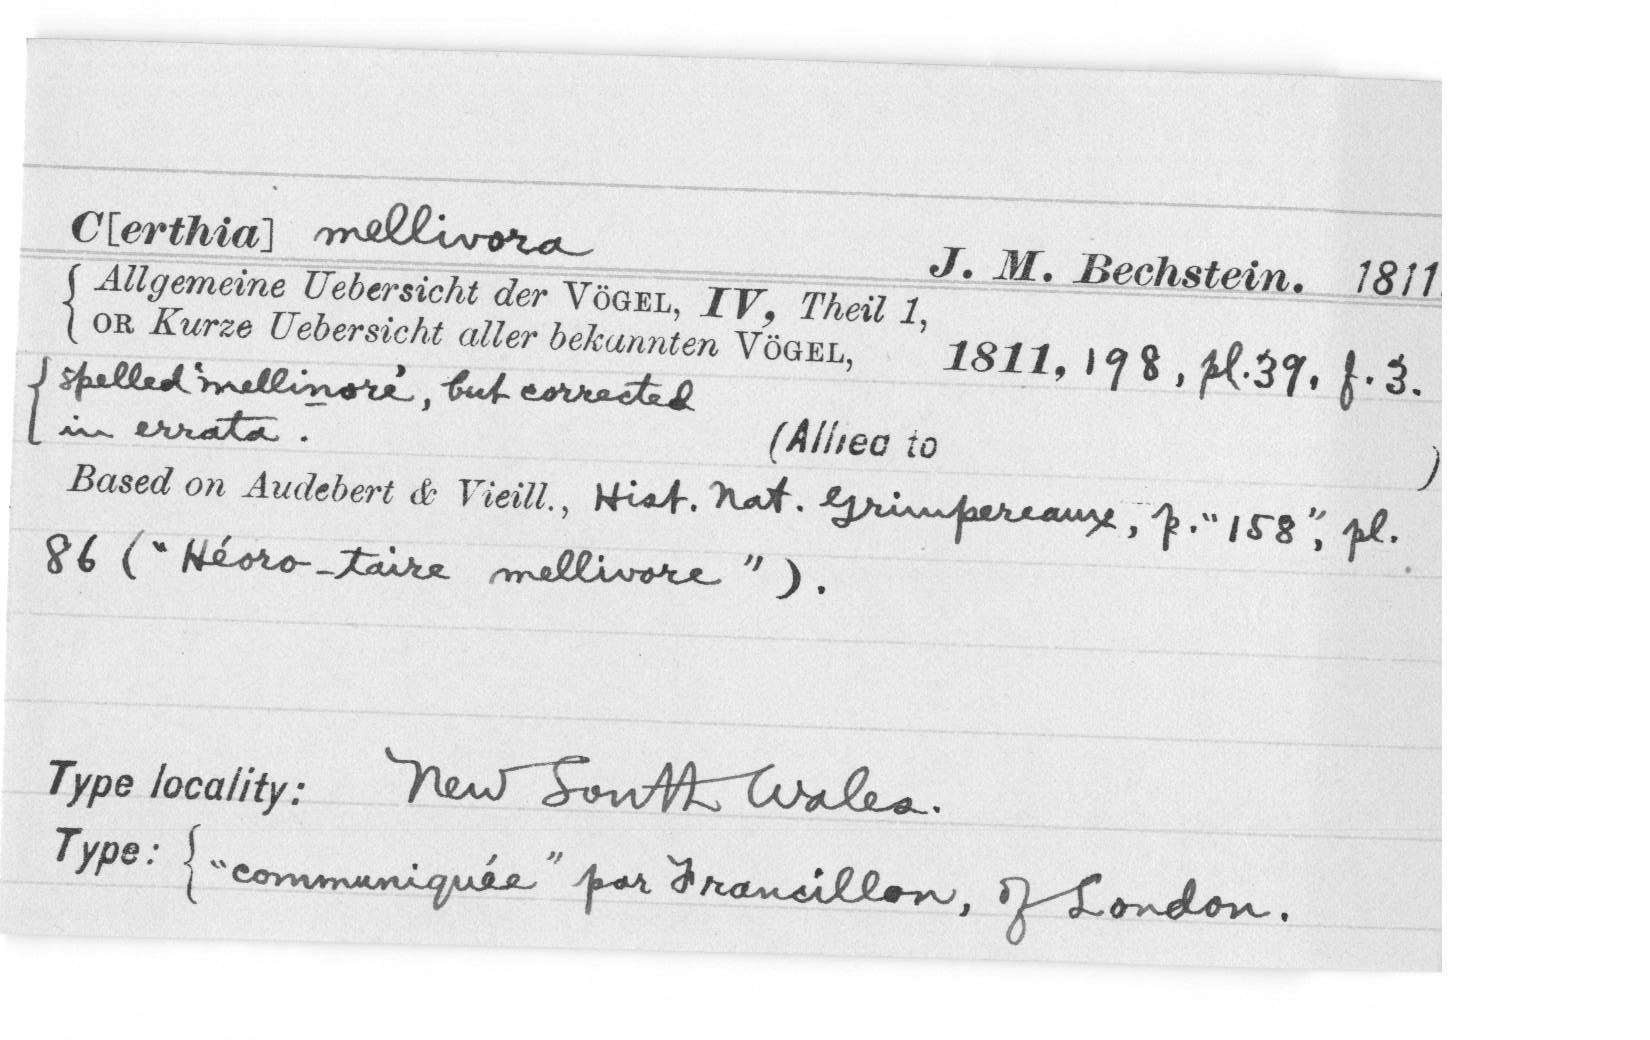 C[erthia] mellivora
J. M. Bechstein. 1811.
{ Allgemeine Uebersicht der VÖGEL, IV, Theil 1,
OR Kurze Uebersicht aller bekannten VÖGEL, 1811, 198, pl. 39, f. 3.
{ spelled "mellinore", but corrected
in errata.
(Allied to )
Based on Audebert & Vieill., Hist. Nat. Grimpereaux, p. "158", pl.
86 ("Héoro-taire mellivore").
Type locality: New South Wales.
Type: { "communiquée" par Francillon, of London.